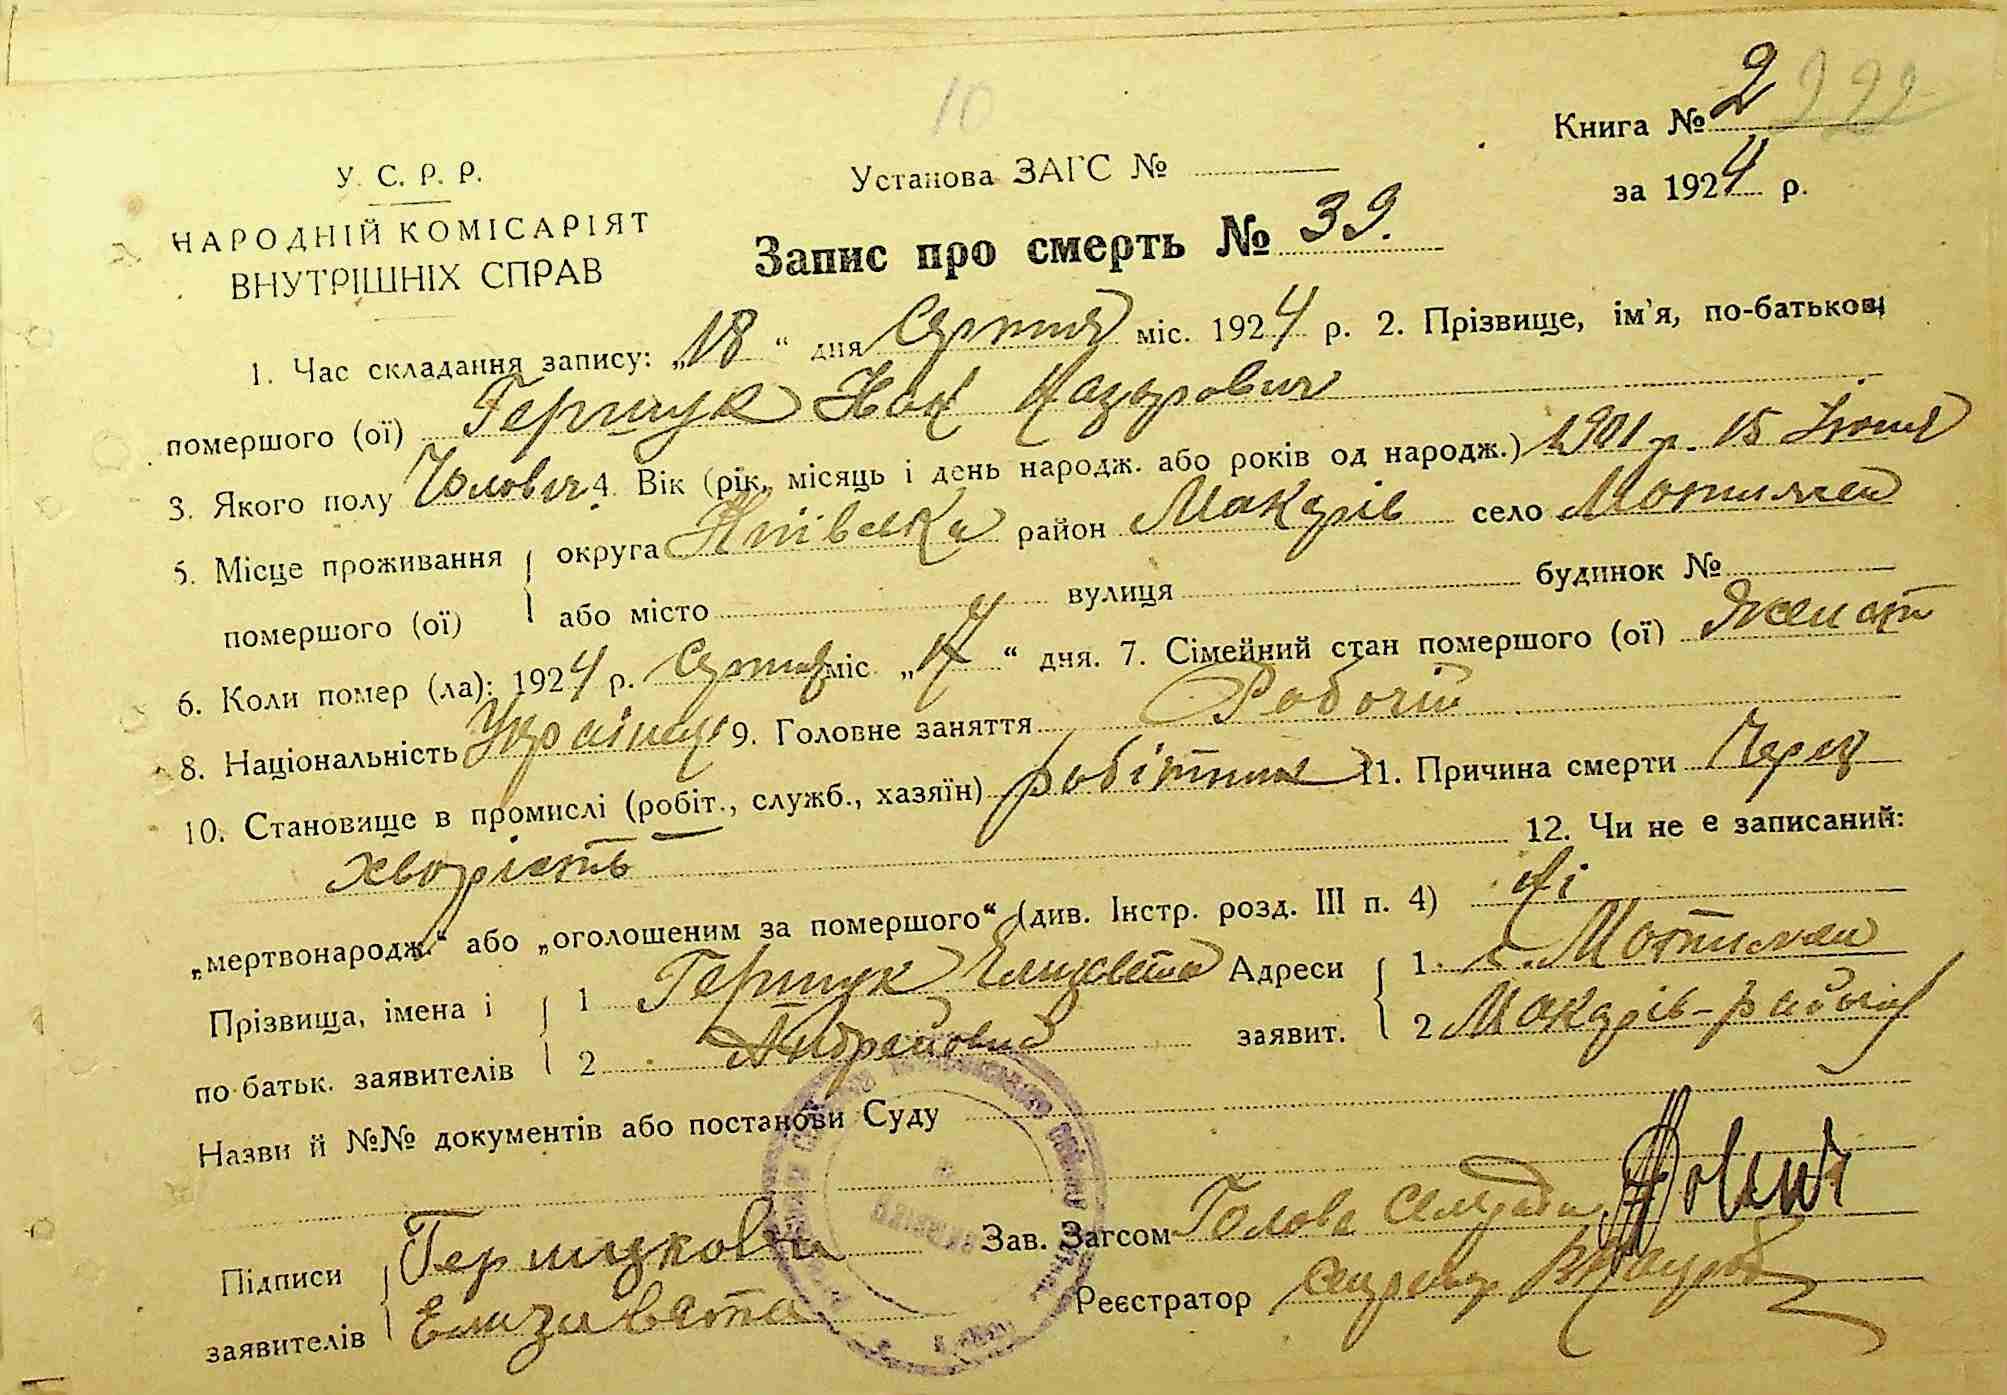 10
Книга № 2 222
У. С. Р. Р.
Установа ЗАГС №
за 1924 р.
НАРОДНІЙ КОМІСАРІЯТ
ВНУТРІШНІХ СПРАВ
Запис про смерть № 39.
1. Час складання запису: „18“ дня Серпня міс. 1924 р. 2. Прізвище, ім'я, по-батькові
помершого (ої) Гершук Назарович
3. Якого полу Чоловіч. 4. Вік (рік, місяць і день народж. або років од народж.) 1901 р. 15 Іюня
5. Місце проживання округа Київська район Макарів село Мотижен
помершого (ої) або місто вулиця будинок №
6. Коли помер (ла): 1924 р. Серпня міс. „17“ дня. 7. Сімейний стан помершого (ої) Женат
8. Національність Українец 9. Головне заняття Робочій
10. Становище в промислі (робіт., служб., хазяїн) робітник 11. Причина смерти Через
хворість 12. Чи не є записаний:
„мертвонародж.“ або „оголошеним за помершого“ (див. Інстр. розд. III п. 4) Ні
Прізвища, імена і 1 Гершук Елизвета Адреси 1. с. Мотижен
по батьк. заявителів 2 Андреевна заявит. 2 Макарів-район
Назви й №№ документів або постанови Суду
Підписи Гершукова Зав. Загсом Голова Сільради
заявителів Елизавета Реєстратор секретар